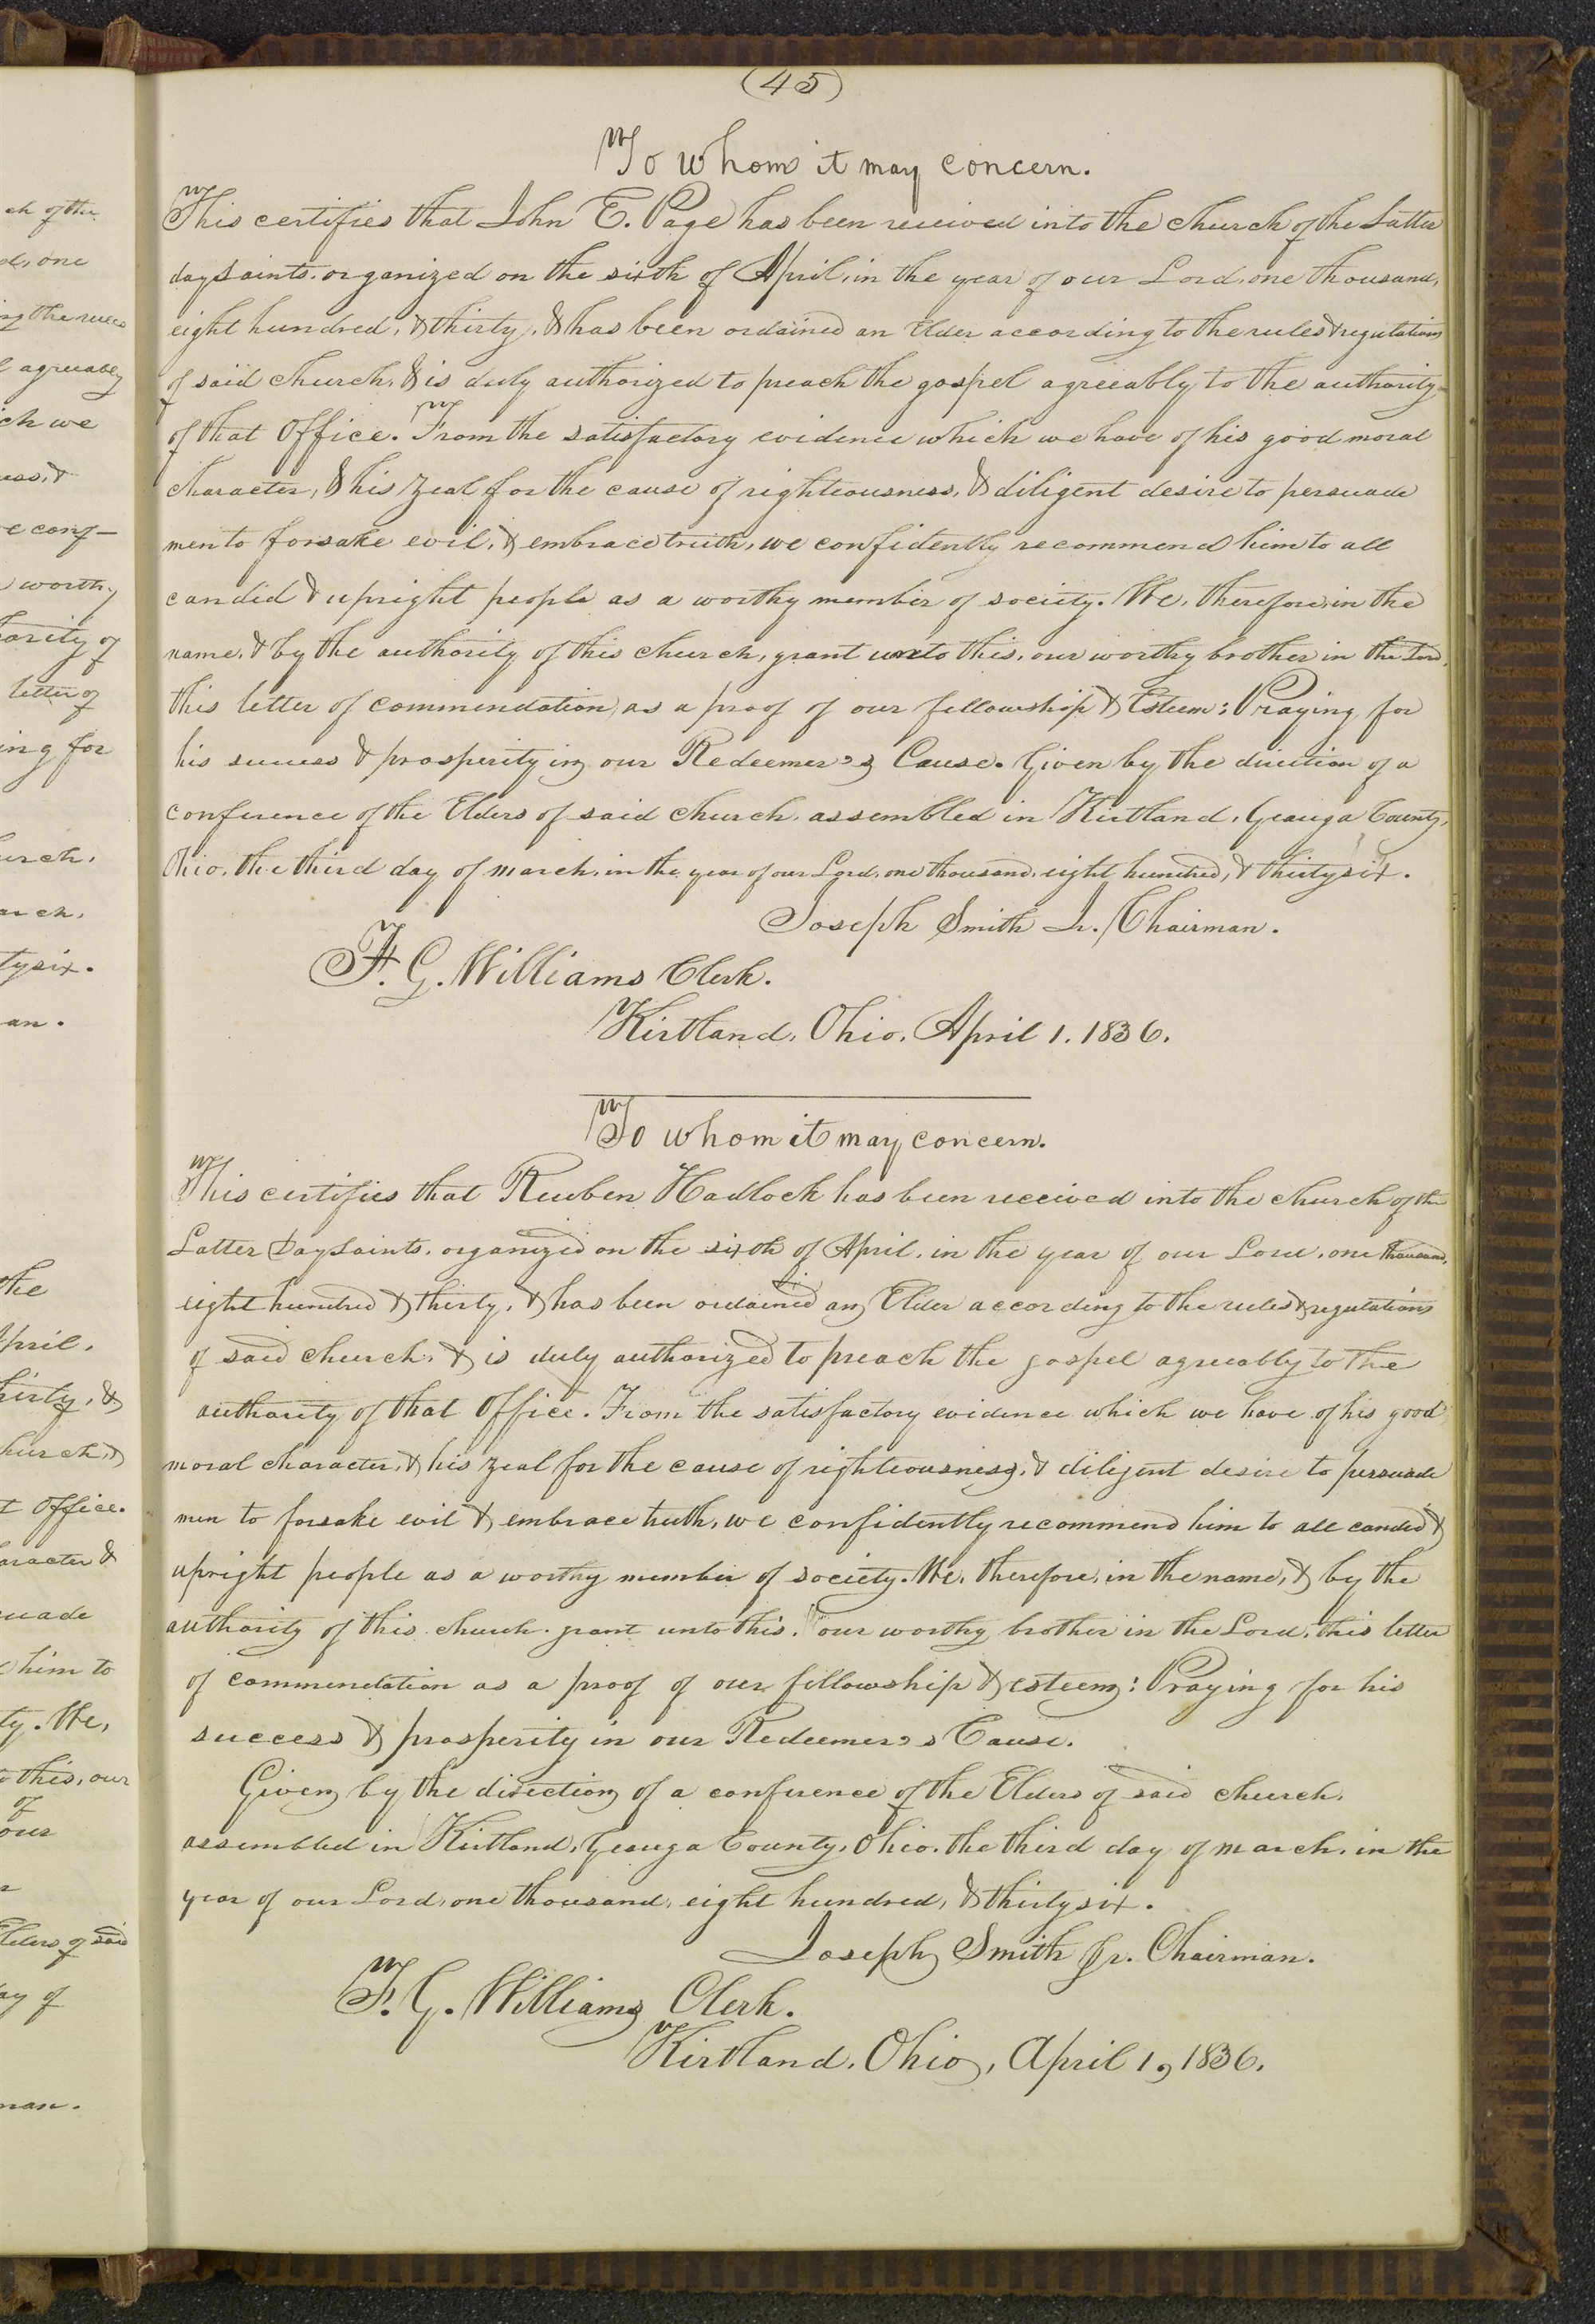 (45)
To whom it may concern.
This certifies that John E. Page has been received into the church of the Latter
day saints, organized on the sixth of April, in the year of our Lord, one thousand,
eight hundred, & thirty, & has been ordained an Elder according to the rules & regulations
of said church, & is duly authorized to preach the gospel agreeably to the authority
of that Office. From the satisfactory evidence which we have of his good moral
character, & his zeal for the cause of righteousness, & diligent desire to persuade
men to forsake evil, & embrace truth, we confidently recommend him to all
candid & upright people as a worthy member of society. We, therefore, in the
name, & by the authority of this church, grant unto this, our worthy brother in the Lord,
this letter of commendation, as a proof of our fellowship & Esteem: Praying for
his success & prosperity in our Redeemer's Cause. Given by the direction of a
conference of the Elders of said church, assembled in Kirtland, Geauga County,
Ohio, the third day of march, in the year of our Lord, one thousand, eight hundred, & thirty six.
Joseph Smith Jr. Chairman.
F. G. Williams Clerk.
Kirtland, Ohio, April 1. 1836.
To whom it may concern.
This certifies that Reuben Hadlock has been received into the church of the
Latter Day Saints, organized on the sixth of April, in the year of our Lord, one thousand,
eight hundred & thirty, & has been ordained an Elder according to the rules & regulations
of said church, & is duly authorized to preach the gospel agreeably to the
authority of that Office. From the satisfactory evidence which we have of his good
moral character, & his zeal for the cause of righteousness, & diligent desire to persuade
men to forsake evil & embrace truth, we confidently recommend him to all candid &
upright people as a worthy member of society. We, therefore, in the name, & by the
authority of this church, grant unto this, our worthy brother in the Lord, this letter
of commendation as a proof of our fellowship & esteem: Praying for his
success & prosperity in our Redeemer's Cause.
Given by the direction of a conference of the Elders of said church,
assembled in Kirtland, Geauga County, Ohio, the third day of march, in the
year of our Lord, one thousand, eight hundred, & thirty six.
Joseph Smith Jr. Chairman.
F. G. Williams Clerk.
Kirtland, Ohio, April 1, 1836.